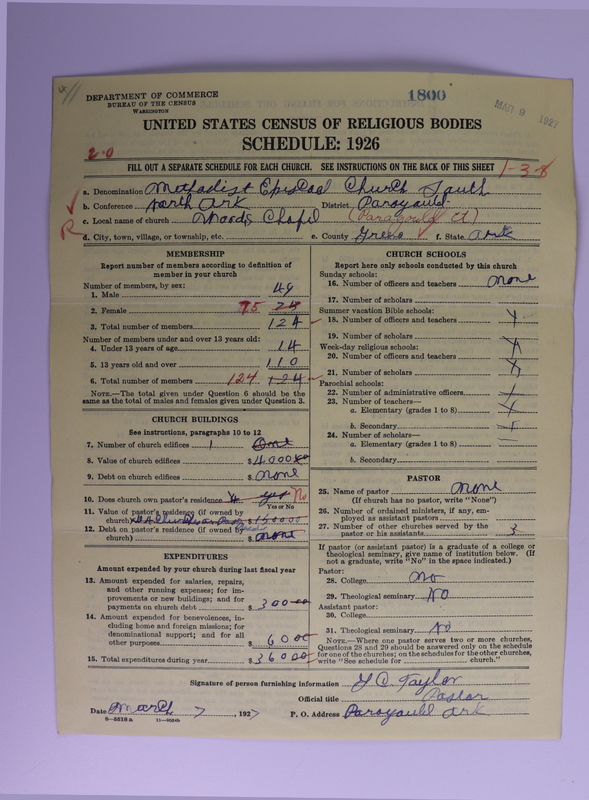 DEPARTMENT OF COMMERCE
BUREAU OF THE CENSUS
WASHINGTON
1800
MAR 9 1927
UNITED STATES CENSUS OF RELIGIOUS BODIES
SCHEDULE: 1926
2-0
FILL OUT A SEPARATE SCHEDULE FOR EACH CHURCH. SEE INSTRUCTIONS ON THE BACK OF THIS SHEET
1-3-8
a. Denomination Methodist Episcoal Church South
b. Conference North Ark District Paragould
c. Local name of church Woods Chapel (Paragould Ct)
d. City, town, village, or township, etc. e. County Greene f. State Ark
MEMBERSHIP
Report number of members according to definition of member in your church
Number of members, by sex:
1. Male 49
2. Female 75 24
3. Total number of members 124
Number of members under and over 13 years old:
4. Under 13 years of age 14
5. 13 years old and over 110
6. Total number of members 124 124
NOTE.—The total given under Question 6 should be the same as the total of males and females given under Question 3.
CHURCH BUILDINGS
See instructions, paragraphs 10 to 12
7. Number of church edifices 1 One
8. Value of church edifices $4000.00
9. Debt on church edifices $ None
10. Does church own pastor's residence? yes No
Yes or No
11. Value of pastor's residence (if owned by church) $1500.00
12. Debt on pastor's residence (if owned by church) $ None
EXPENDITURES
Amount expended by your church during last fiscal year
13. Amount expended for salaries, repairs, and other running expenses; for improvements or new building; and for payments on church debt $ 300.00
14. Amount expended for benevolences, including home and foreign missions; for denominational support; and for all other purposes $ 60 00
15. Total expenditures during year $ 360 00
CHURCH SCHOOLS
Report here only schools conducted by this church
Sunday schools:
16. Number of officers and teachers None
17. Number of scholars
Summer vacation Bible schools:
18. Number of officers and teachers X
19. Number of scholars X
Week-day religious schools:
20. Number of officers and teachers X
21. Number of scholars X
Parochial schools:
22. Number of administrative officers X
23. Number of teachers—
a. Elementary (grades 1 to 8) X
b. Secondary X
24. Number of scholars—
a. Elementary (grades 1 to 8)
b. Secondary
PASTOR
25. Name of pastor None
(If church has no pastor, write "None")
26. Number of ordained ministers, if any, employed as assistant pastors
27. Number of other churches served by the pastor or his assistants 3
If pastor (or assistant pastor) is a graduate of a college or theological seminary, give name of institution below. (If not a graduate, write "No" in the space indicated.)
Pastor:
28. College No
29. Theological seminary No
Assistant pastor:
30. College
31. Theological seminary No
NOTE.—Where one pastor serves two or more churches, Questions 28 and 29 should be answered only on the schedule for one of the churches; on the schedules for the other churches, write "See schedule for church."
Signature of person furnishing information Y. C. Taylor
Official title Pastor
Date March 7, 1927 P. O. Address Paragould Ark
8-5518 a 11-9564b